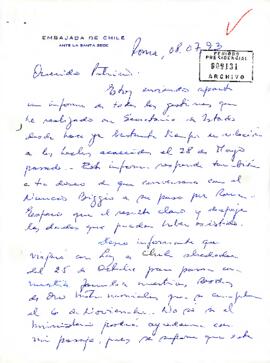 EMBAJADA DE CHILE
ANTE LA SANTA SEDE
Roma, 08.07.93
PERIODO
PRESIDENCIAL
009131
ARCHIVO
Querido Patricio:
Estoy enviando aparte
un informe de todas las gestiones que
he realizado en Secretaría de Estado
desde hace ya bastante tiempo en relación
a los hechos acaecidos el 28 de Mayo
pasado. Este informe responde también
a tu deseo de que conversara con el
Nuncio Biggio a su paso por Roma.
Espero que él resulte claro y despeje
las dudas que puedan haber existido.
Debo informarte que
viajaré con Luz a Chile alrededor
del 25 de Octubre para pasar con
nuestra familia nuestras Bodas
de Oro matrimoniales que se cumplen
el 6 de Noviembre. No sé si el
Ministerio podría ayudarme con
mi pasaje, pues se supone que este